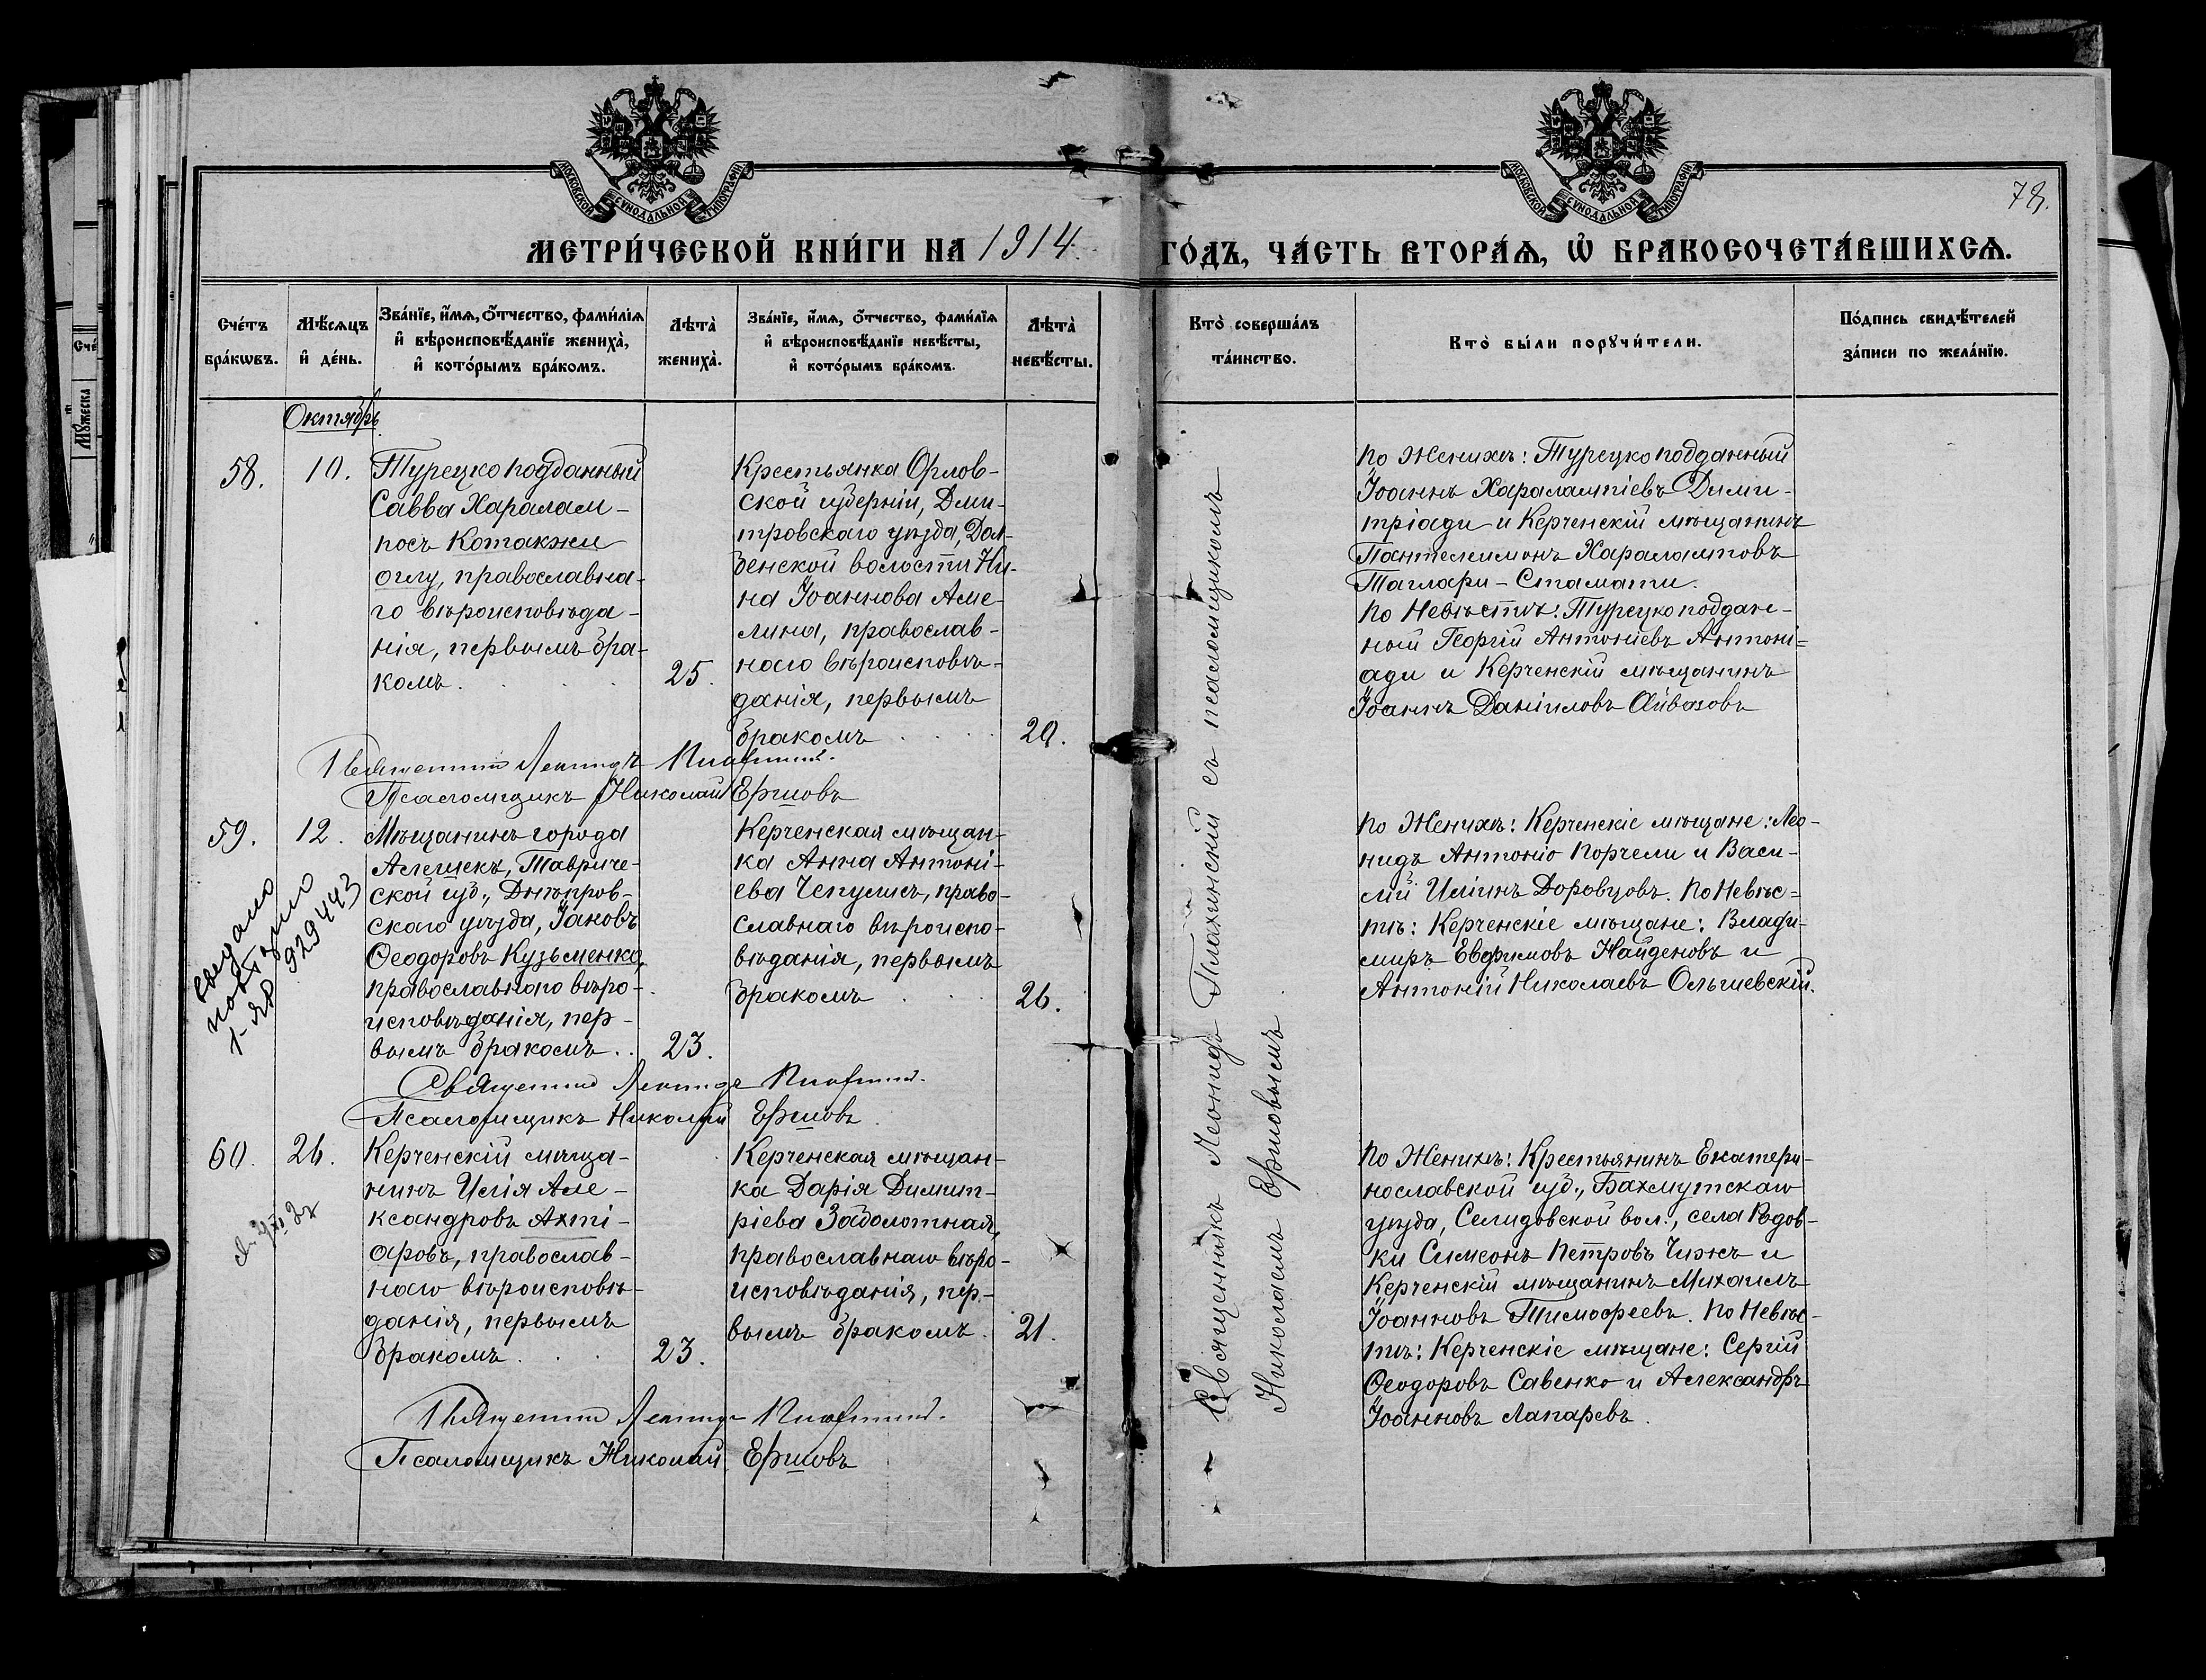 МОСКОВСКОЙ СѴНОДАЛЬНОЙ ТИПОГРАФІИ
МОСКОВСКОЙ СѴНОДАЛЬНОЙ ТИПОГРАФІИ
78.
МЕТРИ́ЧЕСКОЙ КНИ́ГИ НА 1914 ГО́ДЪ, ЧА́СТЬ ВТОРА́Ѧ, Ѽ БРАКОСОЧЕТА́ВШИХСѦ.
Сче́тъ бра́кѡвъ.
Мѣ́сѧцъ и҆ де́нь.
Зва́нїе, и҆́мѧ, ѻ҆́тчество, фами́лїѧ и҆ вѣроисповѣ́данїе жениха̀, и҆ кото́рымъ бра́комъ.
Лѣта̀ жениха̀.
Зва́нїе, и҆́мѧ, ѻ҆́тчество, фами́лїѧ и҆ вѣроисповѣ́данїе невѣ́сты, и҆ кото́рымъ бра́комъ.
Лѣта̀ невѣ́сты.
Кто̀ соверша́лъ та́инство.
Кто̀ бы́ли порꙋчи́тели.
По́дпись свидѣ́телей за́писи по жела́нїю.
Октябрь
58.
10.
Турецко подданный
Савва Харалам-
посъ Котакжи
оглу, православна-
го вѣроисповѣда-
нія, первымъ бра-
комъ.
25.
Крестьянка Орлов-
ской губерніи, Дми-
тровскаго уѣзда, Дол-
бенской волости Ни-
на Іоаннова Аме-
лина, православ-
наго вѣроисповѣ-
данія, первымъ
бракомъ
20.
По Женихѣ: Турецко подданный
Іоаннъ Харалампіевъ Дими-
тріади и Керченскій мѣщанинъ
Пантелеимонъ Хараламповъ
Таглари-Стамати.
По Невѣстѣ: Турецко поддан-
ный Георгій Антоніевъ Антоні-
ади и Керченскій мѣщанинъ
Іоаннъ Даніиловъ Айвазовъ
Священникъ Леонидъ Плахинскій
Псаломщикъ Николай Ершовъ
59.
12.
Мѣщанинъ города
Алешекъ, Тавриче-
ской губ., Днѣпров-
скаго уѣзда, Іаковъ
Ѳеодоровъ Кузьменко,
православнаго вѣро-
исповѣданія, пер-
вымъ бракомъ.
23.
Керченская мѣщан-
ка Анна Антоні-
ева Чепулисъ, право-
славнаго вѣроиспо-
вѣданія, первымъ
бракомъ
26.
По Женихѣ: Керченскіе мѣщане: Лео-
нидъ Антоніо Порчели и Васи-
лій Иліинъ Доровцовъ. По Невѣс-
тѣ: Керченскіе мѣщане: Влади-
миръ Евфимовъ Найденовъ и
Антоній Николаевъ Ольшевскій.
выдано
929443
Священникъ Леонидъ Плахинскій
Псаломщикъ Николай Ершовъ
60.
26.
Керченскій мѣща-
нинъ Илія Але-
ксандровъ Ахті-
аровъ, православ-
наго вѣроисповѣ-
данія, первымъ
бракомъ.
23.
Керченская мѣщан-
ка Дарія Димит-
ріева Заболотная,
православнаго вѣро-
исповѣданія, пер-
вымъ бракомъ.
21.
По Женихѣ: Крестьянинъ Екатери-
нославской губ., Бахмутскаго
уѣзда, Селидовской вол., села Рѣдов-
ки Симеонъ Петровъ Чижъ и
Керченскій мѣщанинъ Михаилъ
Іоанновъ Тимофеевъ. По Невѣс-
тѣ: Керченскіе мѣщане: Сергій
Ѳеодоровъ Савенко и Александръ
Іоанновъ Лапаревъ.
Священникъ Леонидъ Плахинскій
Псаломщикъ Николай Ершовъ
Священникъ Леонидъ Плахинскій съ псаломщикомъ
Николаемъ Ершовымъ